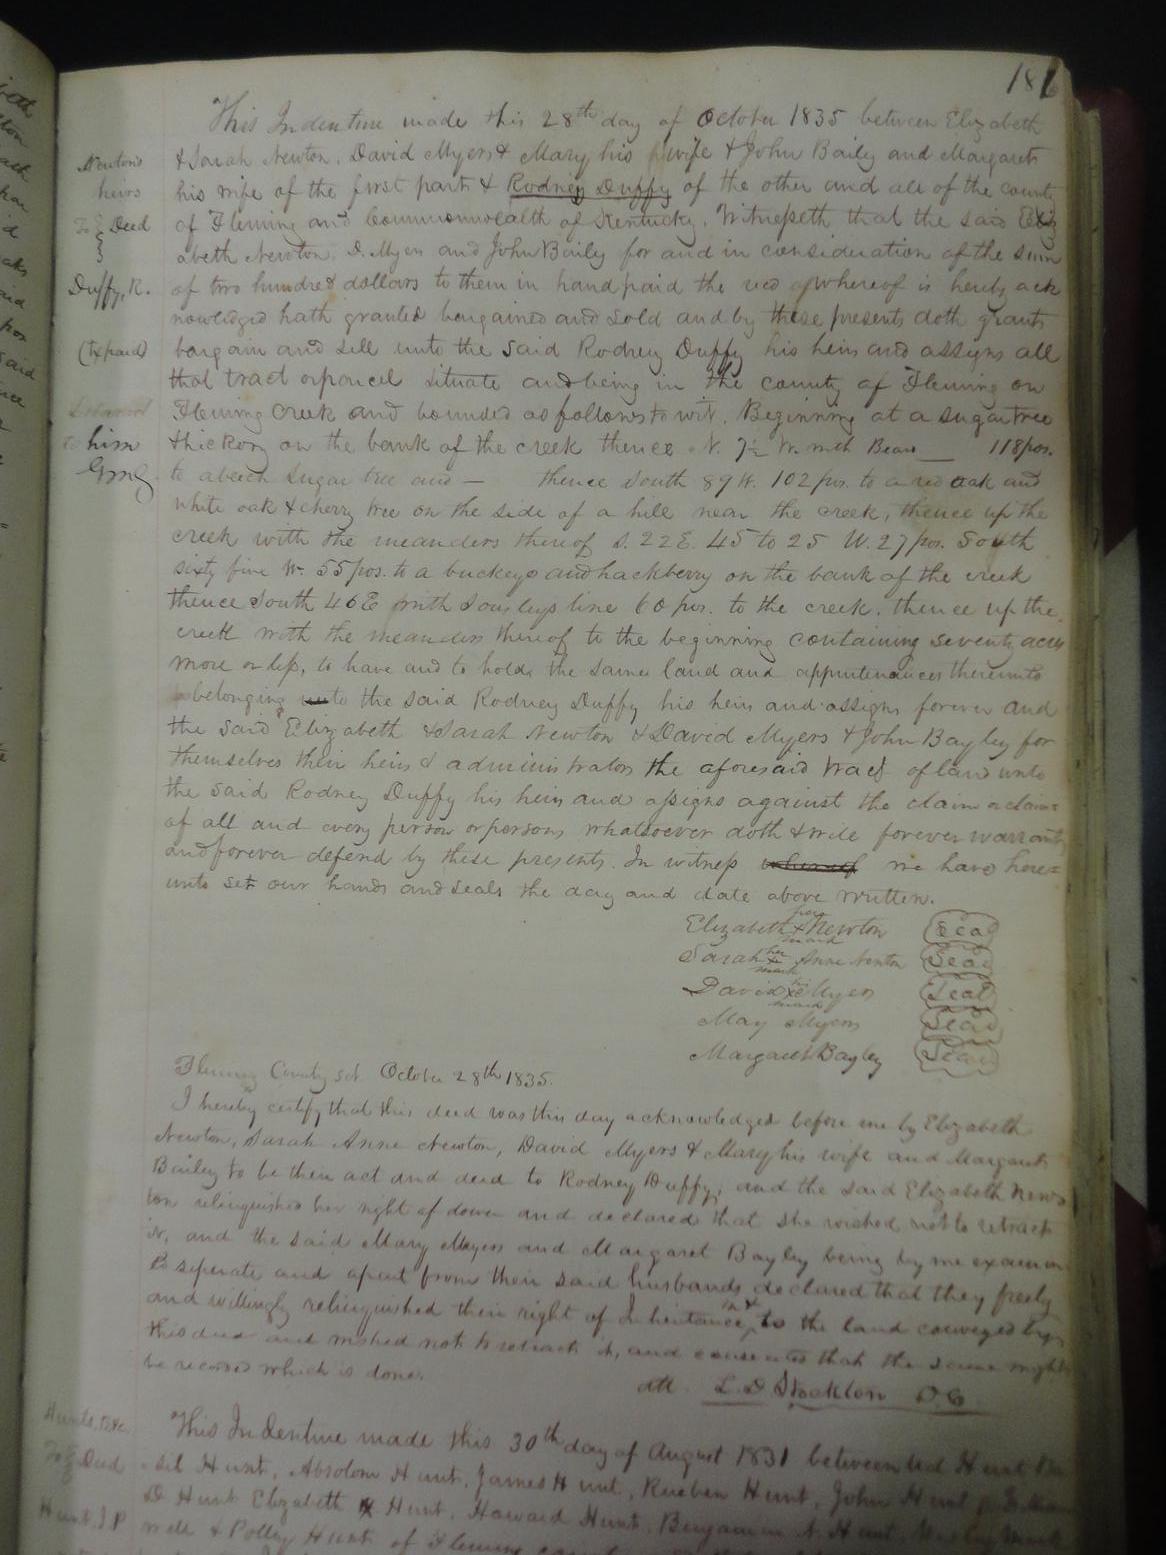 181
This Indenture made this 28th day of October 1835 between Elizabeth
Newton's
& Sarah Newton, David Myers & Mary his wife & John Baily and Margaret
heirs
his wife of the first part & Rodney Duffy of the other and all of the county
To Deed
of Fleming and Commonwealth of Kentucky. Witnesseth that the said Eliz
abeth Newton, D. Myers and John Baily for and in consideration of the sum
Duffy, R.
of two hundred dollars to them in hand paid the whereof is hereby ack
nowledged hath granted bargained and sold and by these presents doth grant
(tx paid)
bargain and sell unto the said Rodney Duffy his heirs and assigns all
that tract or parcel situate and being in the county of Fleming on
Fleming Creek and bounded as follows to wit. Beginning at a sugar tree
to him
& hickory on the bank of the creek thence N. 7½ W. with Bears 118 pos.
to a beech sugar tree and — thence South 89 W. 102 pos. to a red oak and
white oak & cherry tree on the side of a hill near the creek, thence up the
creek with the meanders thereof S. 22 E. 45 to 25 W. 27 pos. South
sixty five W. 55 pos. to a buckeye and hackberry on the bank of the creek
thence South 46 E with Sousleys line 60 pos. to the creek, thence up the
creek with the meanders thereof to the beginning containing seventy acres
more or less, to have and to hold the same land and appurtenances thereunto
belonging unto the said Rodney Duffy his heirs and assigns forever and
the said Elizabeth & Sarah Newton & David Myers & John Bayley for
themselves their heirs & administrators the aforesaid tract of land unto
the said Rodney Duffy his heirs and assigns against the claim or claims
of all and every person or persons whatsoever doth & will forever warrant
and forever defend by these presents. In witness whereof we have here=
unto set our hands and seals the day and date above written.
Elizabeth her x mark Newton Seal
Sarah her x mark Anne Newton Seal
David his x mark Myers Seal
May Myers Seal
Margaret Bayley Seal
Fleming County sct. October 28th 1835.
I hereby certify that this deed was this day acknowledged before me by Elizabeth
Newton, Sarah Anne Newton, David Myers & Mary his wife and Margaret
Bailey to be their act and deed to Rodney Duffy, and the said Elizabeth New
ton relinquished her right of dower and declared that she wished not to retract
it, and the said Mary Myers and Margaret Bayley being by me examin
ed seperate and apart from their said husbands declared that they freely
and willingly relinquished their right of Inheritance in & to the land conveyed by
this deed and wished not to retract it, and consented that the same might
be recorded which is done.
att. L. D. Stockton D.C.
This Indenture made this 30th day of August 1831 between Hunt
To Deed
Hunt, Absolom Hunt, James Hunt, Rueben Hunt, John Hunt
Hunt J.P
D Hunt Elizabeth Hunt, Howard Hunt, Benjamin Hunt,
& Polly Hunt of Fleming